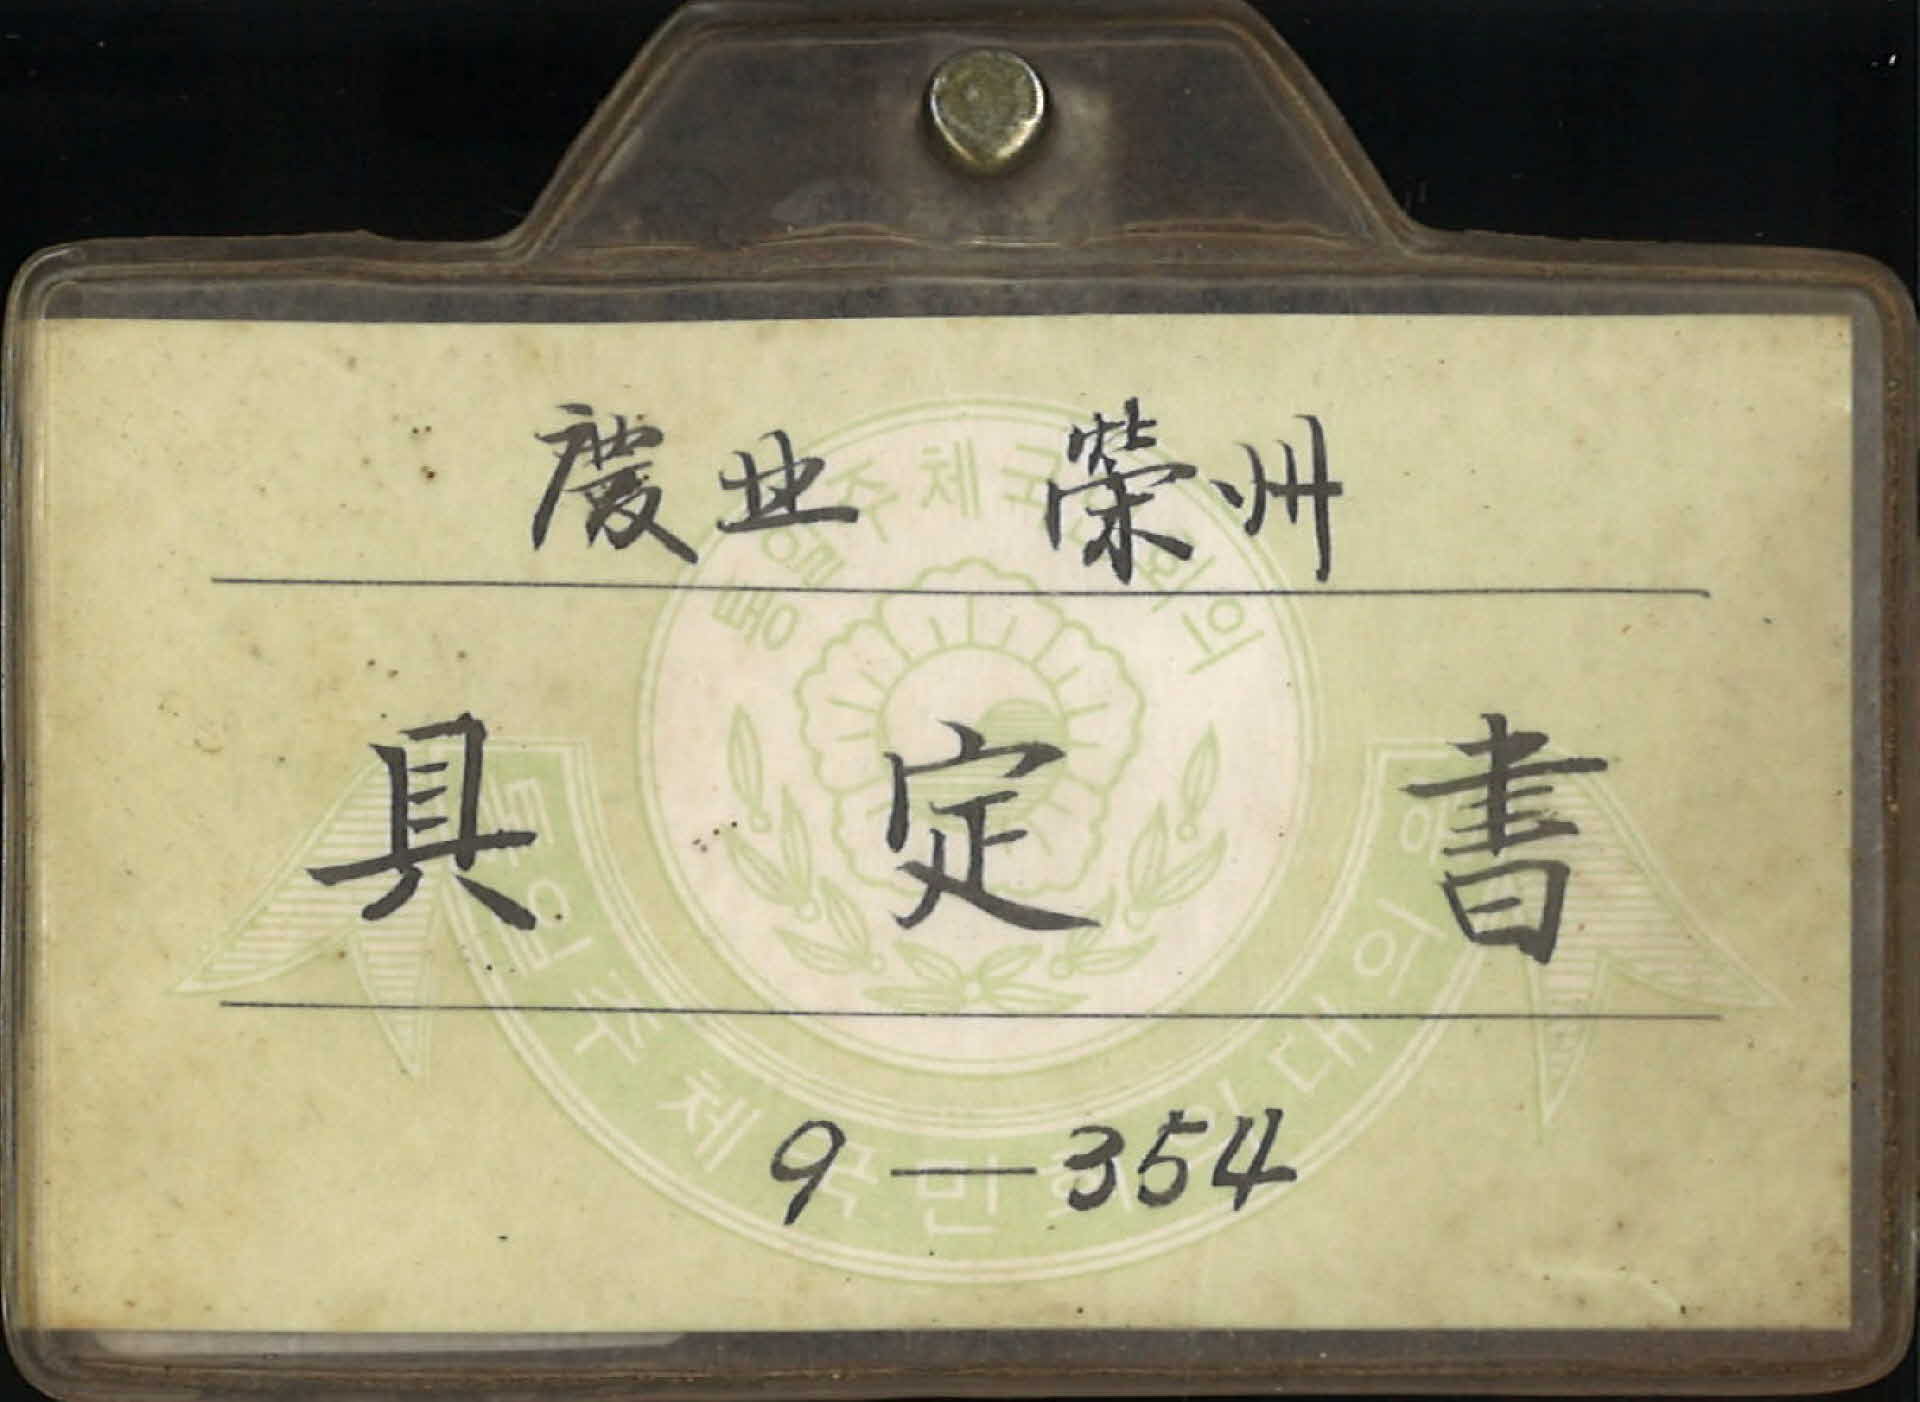 慶北 榮州
具 定 書
9—354
통일주체국민회의
통일주체국민회의대의원